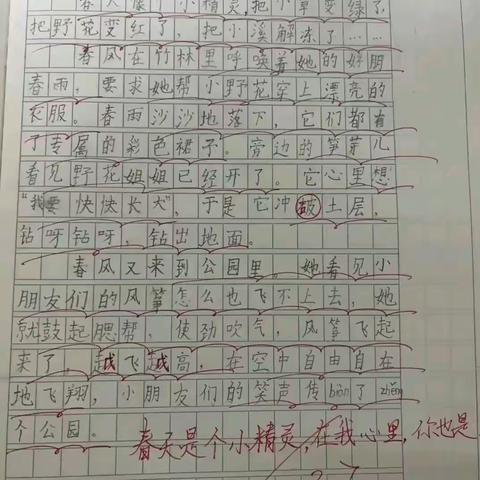 春天像个小精灵,把小草变绿了,
把野花变红了,把小溪解冻了……
春风在竹林里呼唤着她的好朋
春雨,要求她帮小野花穿上漂亮的
衣服。春雨沙沙地落下,它们都有
了专属的彩色裙子。旁边的笋芽儿
看见野花姐姐已经开了。它心里想
“我要快快长大”,于是它冲破土层,
钻呀钻呀,钻出地面。
春风又来到公园里。她看见小
朋友们的风筝怎么也飞不上去,她
就鼓起腮帮,使劲吹气,风筝飞起
来了,越飞越高,在空中自由自在
地飞翔,小朋友们的笑声传biàn了zhěng
个公园。
春天是个小精灵,在我心里,你也是